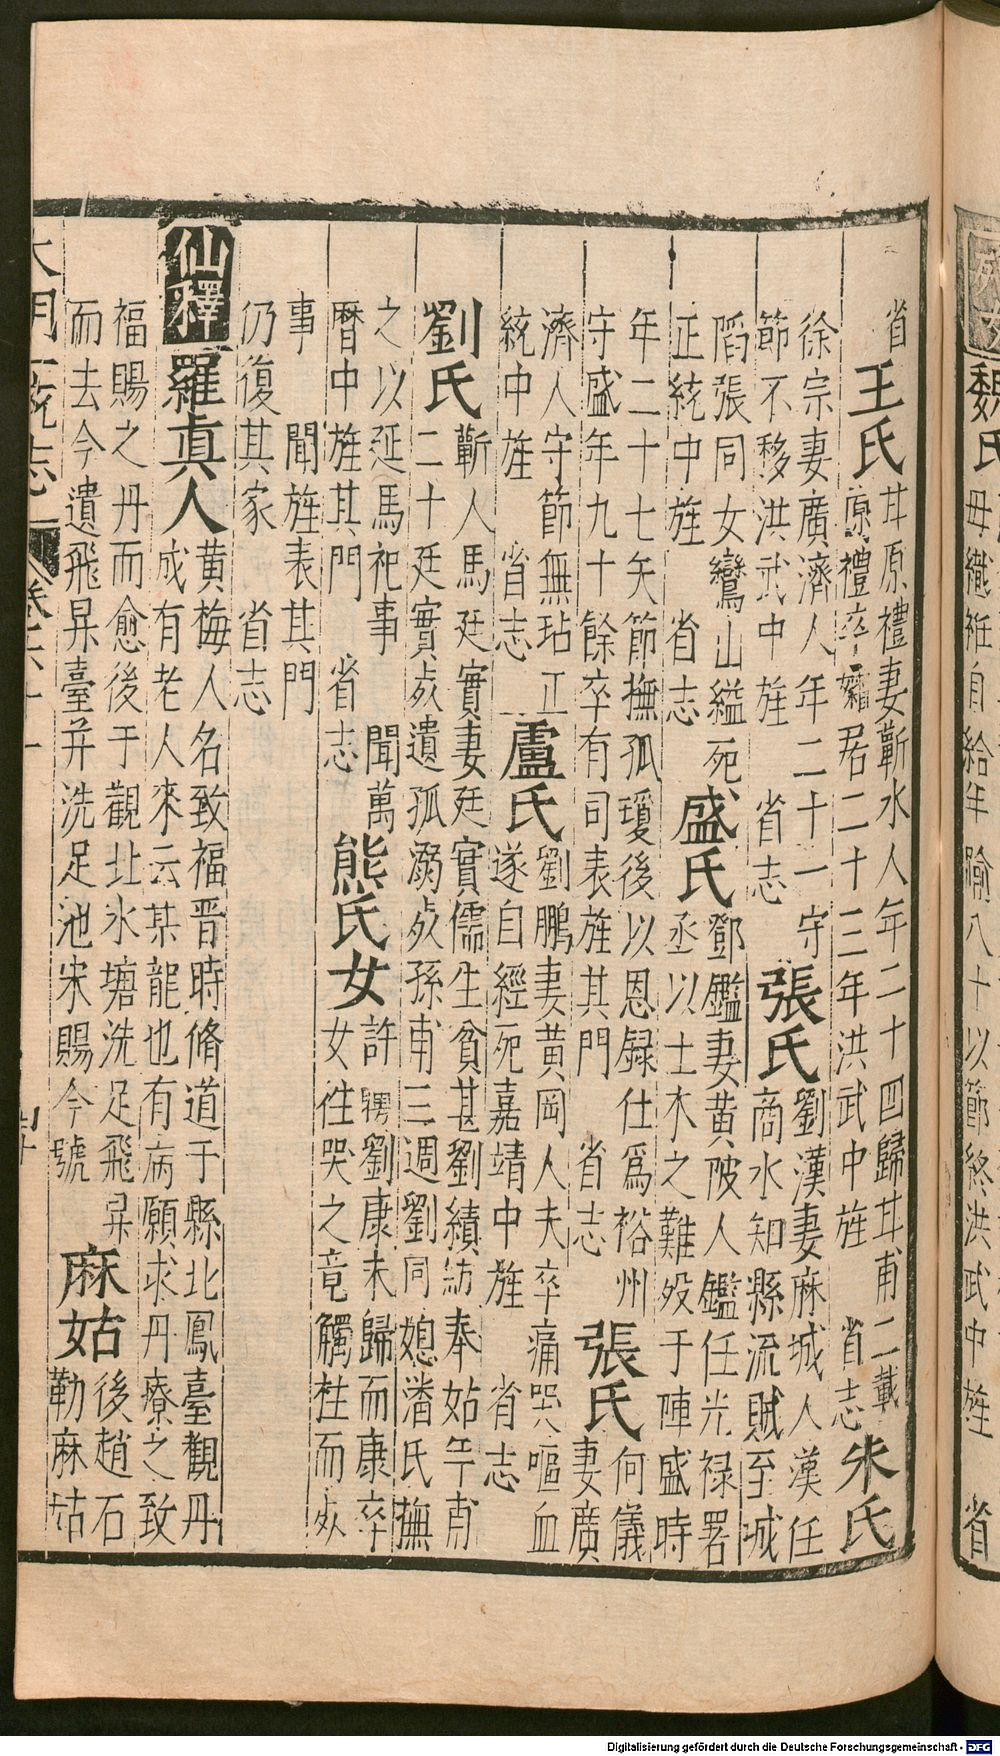 魏氏
母織絍自給年踰八十以節終洪武中旌 省
省
王氏
甘原禮妻蘄水人年二十四歸甘甫二載
原禮卒孀居二十三年洪武中旌 省志
朱氏
徐宗妻廣濟人年二十一守
節不移洪武中旌 省志
張氏
劉漢妻麻城人漢任
商水知縣流賊至城
陷張同女鸞山縊死
正統中旌 省志
盛氏
鄧鑑妻黃陂人鑑任光禄署
丞以土木之難歿于陣盛時
年二十七矢節撫孤瓊後以恩録仕爲裕州
守盛年九十餘卒有司表旌其門 省志
張氏
何儀
妻廣
濟人守節無玷正
統中旌 省志
盧氏
劉鵬妻黃岡人夫卒痛哭嘔血
遂自經死嘉靖中旌 省志
劉氏
蘄人馬廷實妻廷實儒生貧甚劉績紡奉姑年甫
二十廷實歿遺孤溺歿孫甫三週劉同媳潘氏撫
之以延馬祀事 聞萬
曆中旌其門 省志
熊氏女
許騁劉康未歸而康卒
女往哭之竟觸柱而歿
事 聞旌表其門
仍復其家 省志
仙釋
羅真人
黃梅人名致福晋時脩道于縣北鳳臺觀丹
成有老人來云某龍也有病願求丹療之致
福賜之丹而愈後于觀北水塘洗足飛昇
而去今遺飛昇臺并洗足池宋賜今號
麻姑
後趙石
勒麻姑
大明一統志 卷六十一
四十
Digitalisierung gefördert durch die Deutsche Forschungsgemeinschaft - DFG